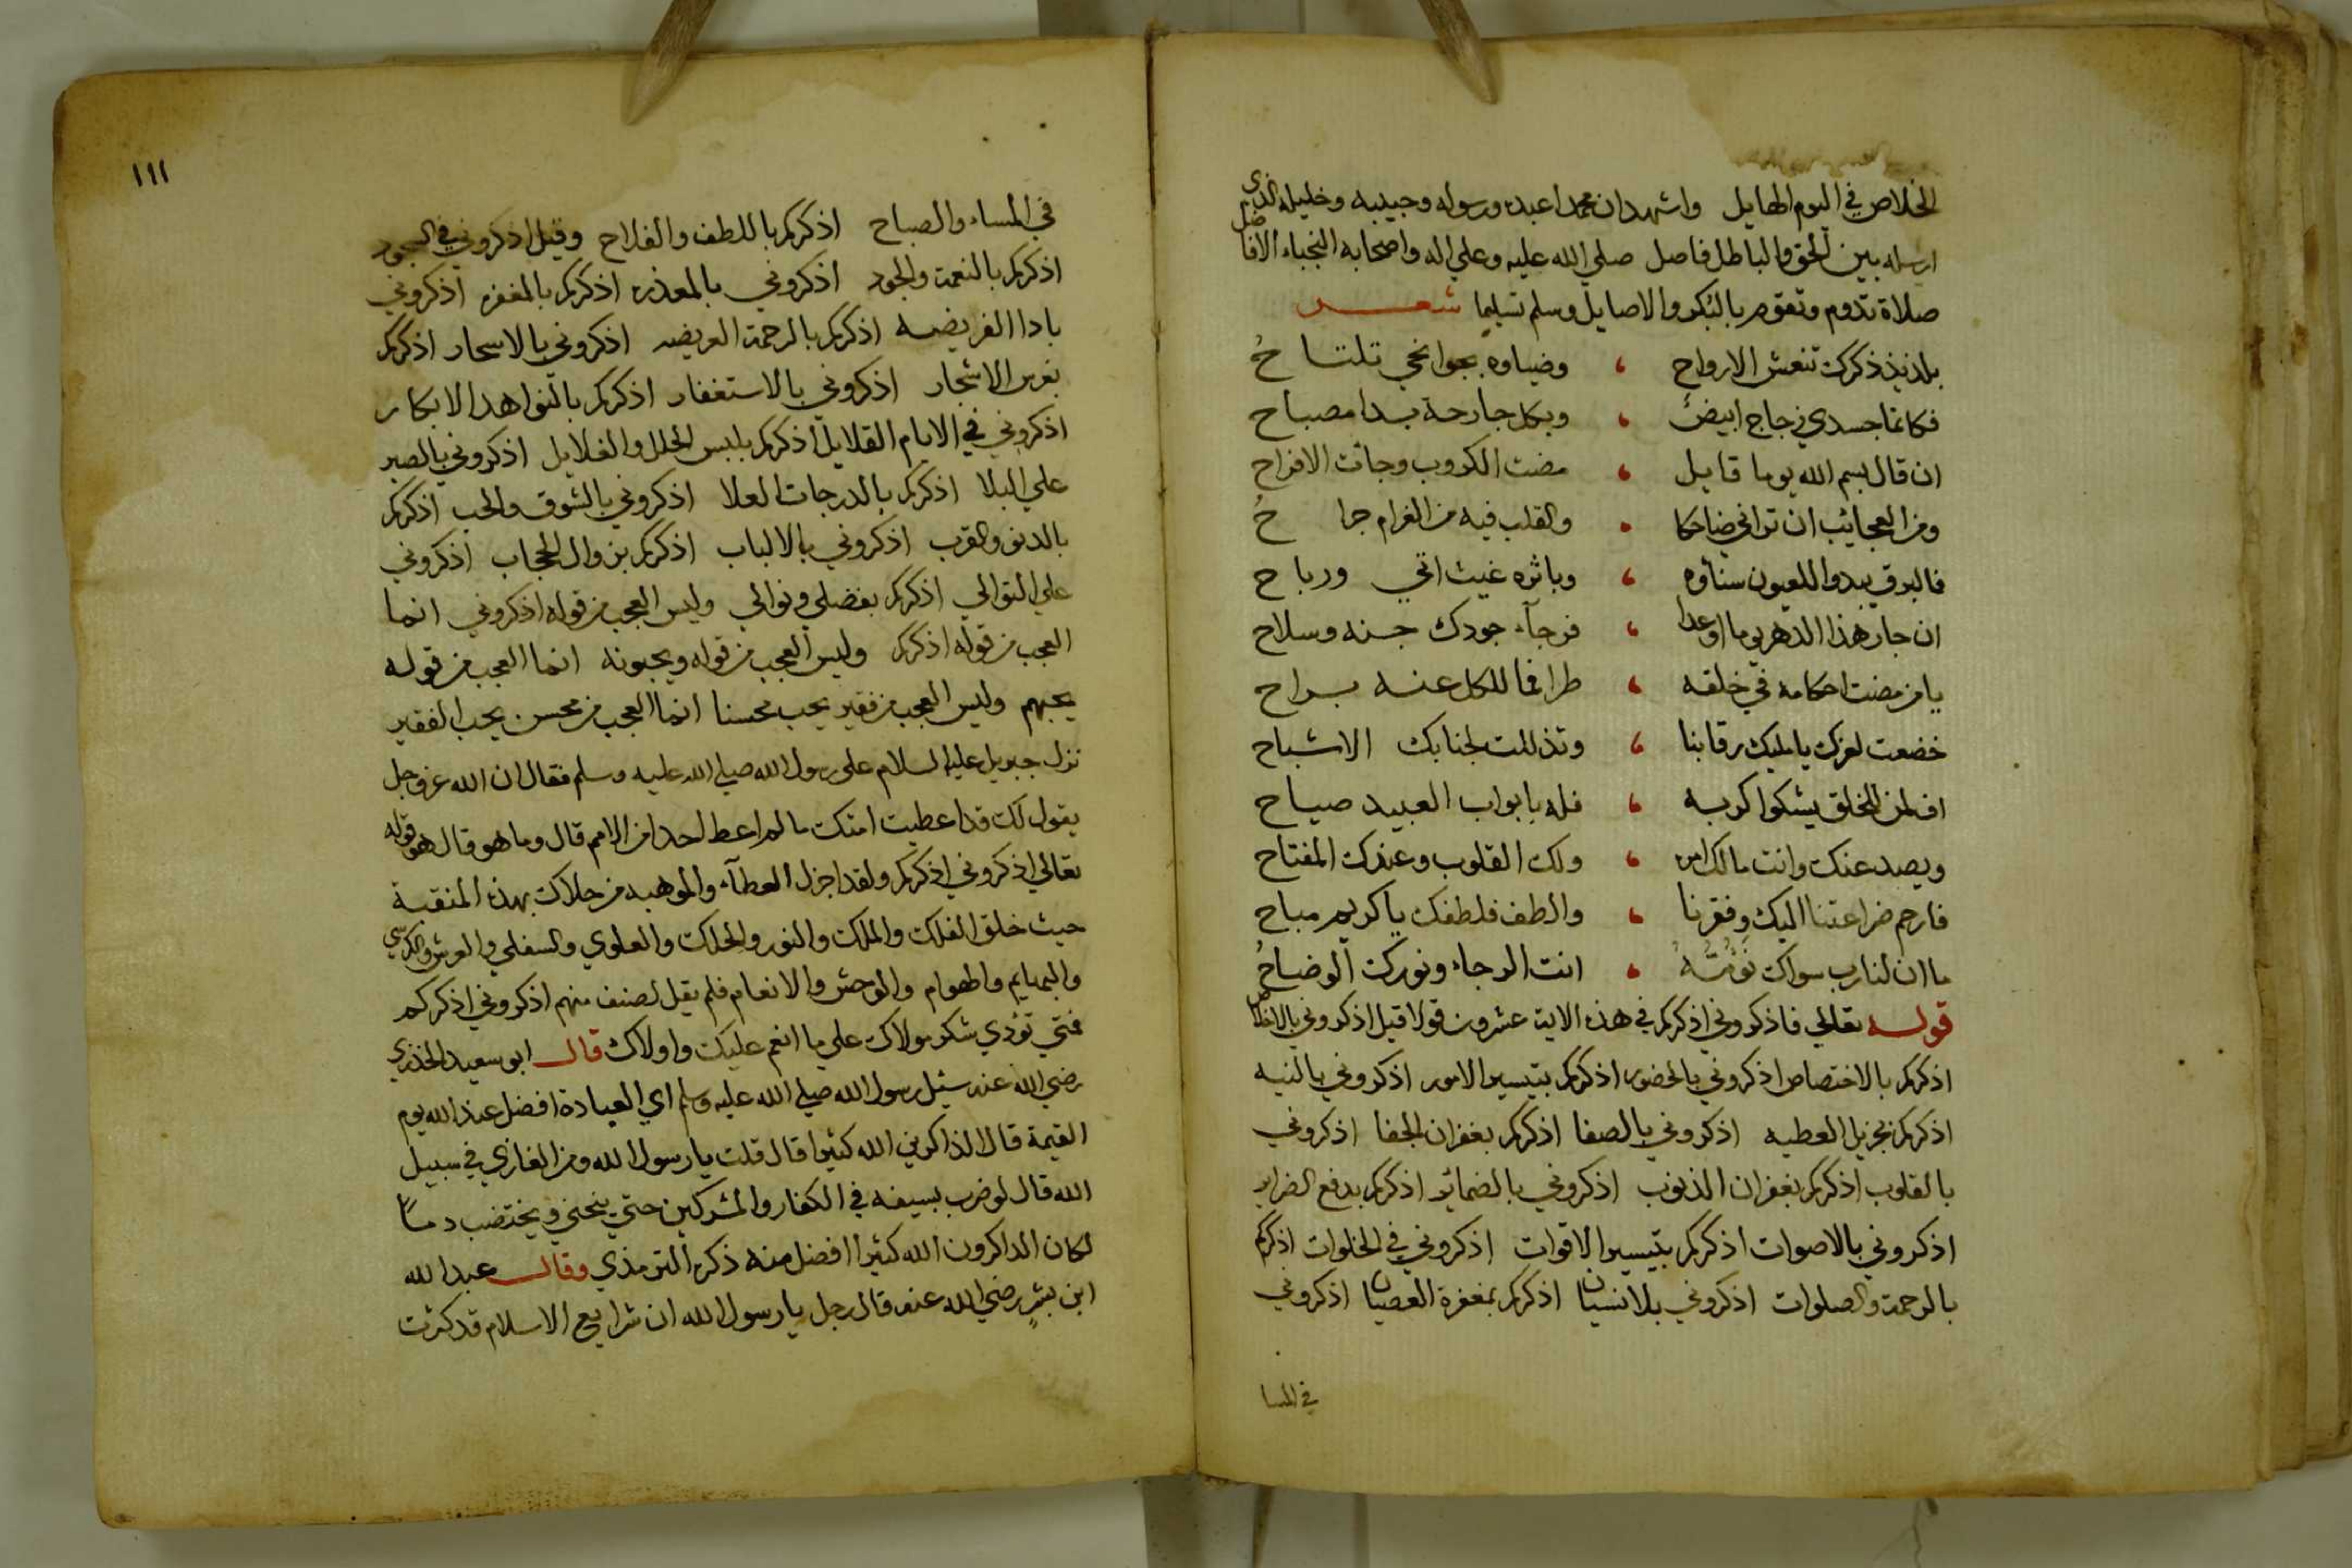 الخلاص في اليوم الهايل واشهد ان محمدا عبده ورسوله وحبيبه وخليله الذي
ارسله بين الحق والباطل فاصل صلي الله عليه وعلي اله واصحابه النجباء الافاضل
صلاة تدوم وتقوم بالبكر والاصايل وسلم تسليما شعر
بلذيذ ذكرك تنعش الارواح ، وضياوه بجوانحي تلتاح
فكانما جسدي زجاج ابيض ، وبكل جارحة بدا مصباح
ان قال بسم الله يوما قايل ، مضت الكروب وجائت الافراح
ومن العجائب ان تراني ضاحكا ، والقلب فيه من الغرام جراح
فالبرق يبدوا للعيون سناؤه ، وباثره غيث اتي ورياح
ان جار هذا الدهر يوما او عدا ، فرجآء جودك جنه وسلاح
يا من مضت احكامه في خلقه ، طرا فما للكل عنه براح
خضعت لعزك يا مليك رقابنا ، وتذللت لجنابك الاشباح
اف لمن للخلق يشكوا كربه ، فله بابواب العبيد صياح
ويصد عنك وانت مالك امره ، ولك القلوب وعندك المفتاح
فارحم ضراعتنا اليك وفقرنا ، والطف فلطفك يا كريم مباح
ما ان لنا رب سواك نؤمه ، انت الرجاء ونورك الوضاح
قوله تعالي فاذكروني اذكركم في هذه الاية عشرون قولا قيل اذكروني بالاخلاص
اذكركم بالاختصاص اذكروني بالحضور اذكركم بتيسير الامور اذكروني بالنيه
اذكركم بجزيل العطيه اذكروني بالصفا اذكركم بغفران الجفا اذكروني
بالقلوب اذكركم بغفران الذنوب اذكروني بالضمائر اذكركم بدفع الضراير
اذكروني بالاصوات اذكركم بتيسير الاقوات اذكروني في الخلوات اذكركم
بالرحمة والصلوات اذكروني بلا نسيان اذكركم بمغفرة العصيان اذكروني
في المسا
١١١
في المساء والصباح اذكركم باللطف والفلاح وقيل اذكروني في السجود
اذكركم بالنعمة والجود اذكروني بالمعذره اذكركم بالمغفره اذكروني
بادا الفريضه اذكركم بالرحمة العريضه اذكروني بالاسحار اذكركم
بغرس الاشجار اذكروني بالاستغفار اذكركم بالنواهد الابكار
اذكروني في الايام القلايل اذكركم بلبس الحلل والغلايل اذكروني بالصبر
علي البلا اذكركم بالدرجات العلا اذكروني بالشوق والحب اذكركم
بالدنو والقرب اذكروني بالالباب اذكركم بزوال الحجاب اذكروني
علي التوالي اذكركم بفضلي ونوالي وليس العجب من قوله اذكروني انما
العجب من قوله اذكركم وليس العجب من قوله ويحبونه انما العجب من قوله
يحبهم وليس العجب من فقير يحب محسنا انما العجب من محسن يحب الفقير
نزل جبريل عليه السلام على رسول الله صلي الله عليه وسلم فقال ان الله عز وجل
يقول لك قد اعطيت امتك ما لم اعط لحد من الامم قال وما هو قال هو قوله
تعالي اذكروني اذكركم ولقد اجزل العطآء والموهبه من حلاك بهذه المنقبة
حيث خلق الفلك والملك والنور والحلك والعلوي والسفلي والعرش والكرسي
والبهايم والهوام والوحش والانعام فلم يقل لصنف منهم اذكروني اذكركم
فمتي تؤدي شكر مولاك علي ما انعم عليك واولاك قال ابو سعيد الخذري
رضي الله عنه سئل رسول الله صلي الله عليه وسلم اي العبادة افضل عند الله يوم
القيمة قال الذاكرين الله كثيرا قال قلت يا رسول الله ومن الغازي في سبيل
الله قال لو ضرب بسيفه في الكفار والمشركين حتي ينحني ويختضب دماً
لكان الذاكرون الله كثيرا افضل منه ذكره الترمذي وقال عبد الله
ابن بشر رضي الله عنه قال رجل يا رسول الله ان شرايع الاسلام قد كثرت